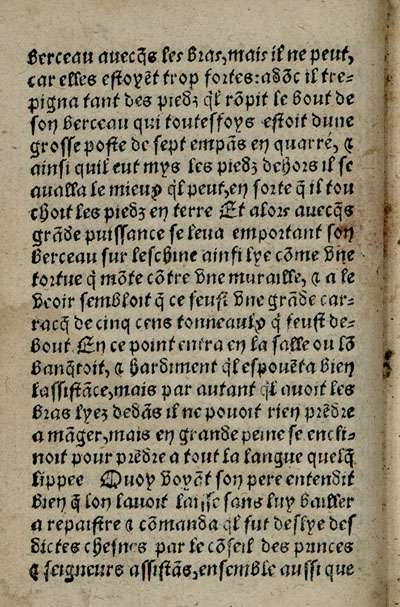 berceau auecq̃s les bras, mais il ne peut,
car elles estoyẽt trop fortes: adõc il tre-
pigna tant des piedz q̃l rõpit le bout de
son berceau qui toutesfoys estoit dune
grosse poste de sept empãs en quarré, ⁊
ainsi quil eut mys les piedz dehors il se
aualla le mieux q̃l peut, en sorte q̃ il tou
choit les piedz en terre Et alors auecq̃s
grãde puissance se leua emportant son
berceau sur leschine ainsi lye cõme vne
tortue q̃ mõte cõtre vne muraille, ⁊ a le
veoir sembloit q̃ ce feust vne grãde car-
racq̃ de cinq cens tonneaulx q̃ feust de-
bout. En ce point entra en la salle ou lõ
banq̃toit, ⁊ hardiment q̃l espouẽta bien
lassistãce, mais par autant q̃l auoit les
bras lyez dedãs il ne pouoit rien prẽdre
a mãger, mais en grande peine se encli-
noit pour prẽdre a tout la langue quelq̃
lippee Quoy voyãt son pere entendit
bien q̃ lon lauoit laisse sans luy bailler
a repaistre ⁊ cõmanda q̃l fut deslye des
dictes chesnes par le cõseil des princes
⁊ seigneurs assistãs, ensemble aussi que